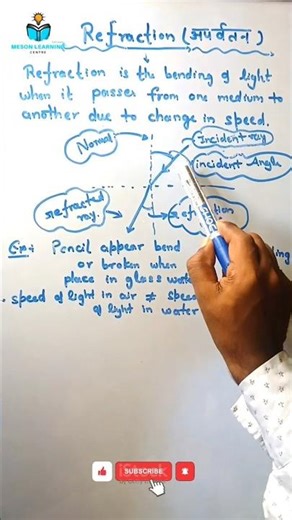 MESON LEARNING
CENTRE
Refraction (अपवर्तन)
Refraction is the bending of light
when it passes from one medium to
another due to change in speed.
Normal
Incident ray
incident Angle
Refracted
ray.
Ex:- Pencil appear bend
or broken when
place in glass
speed of light in air ≠
of light in water
SUBSCRIBE
iStock